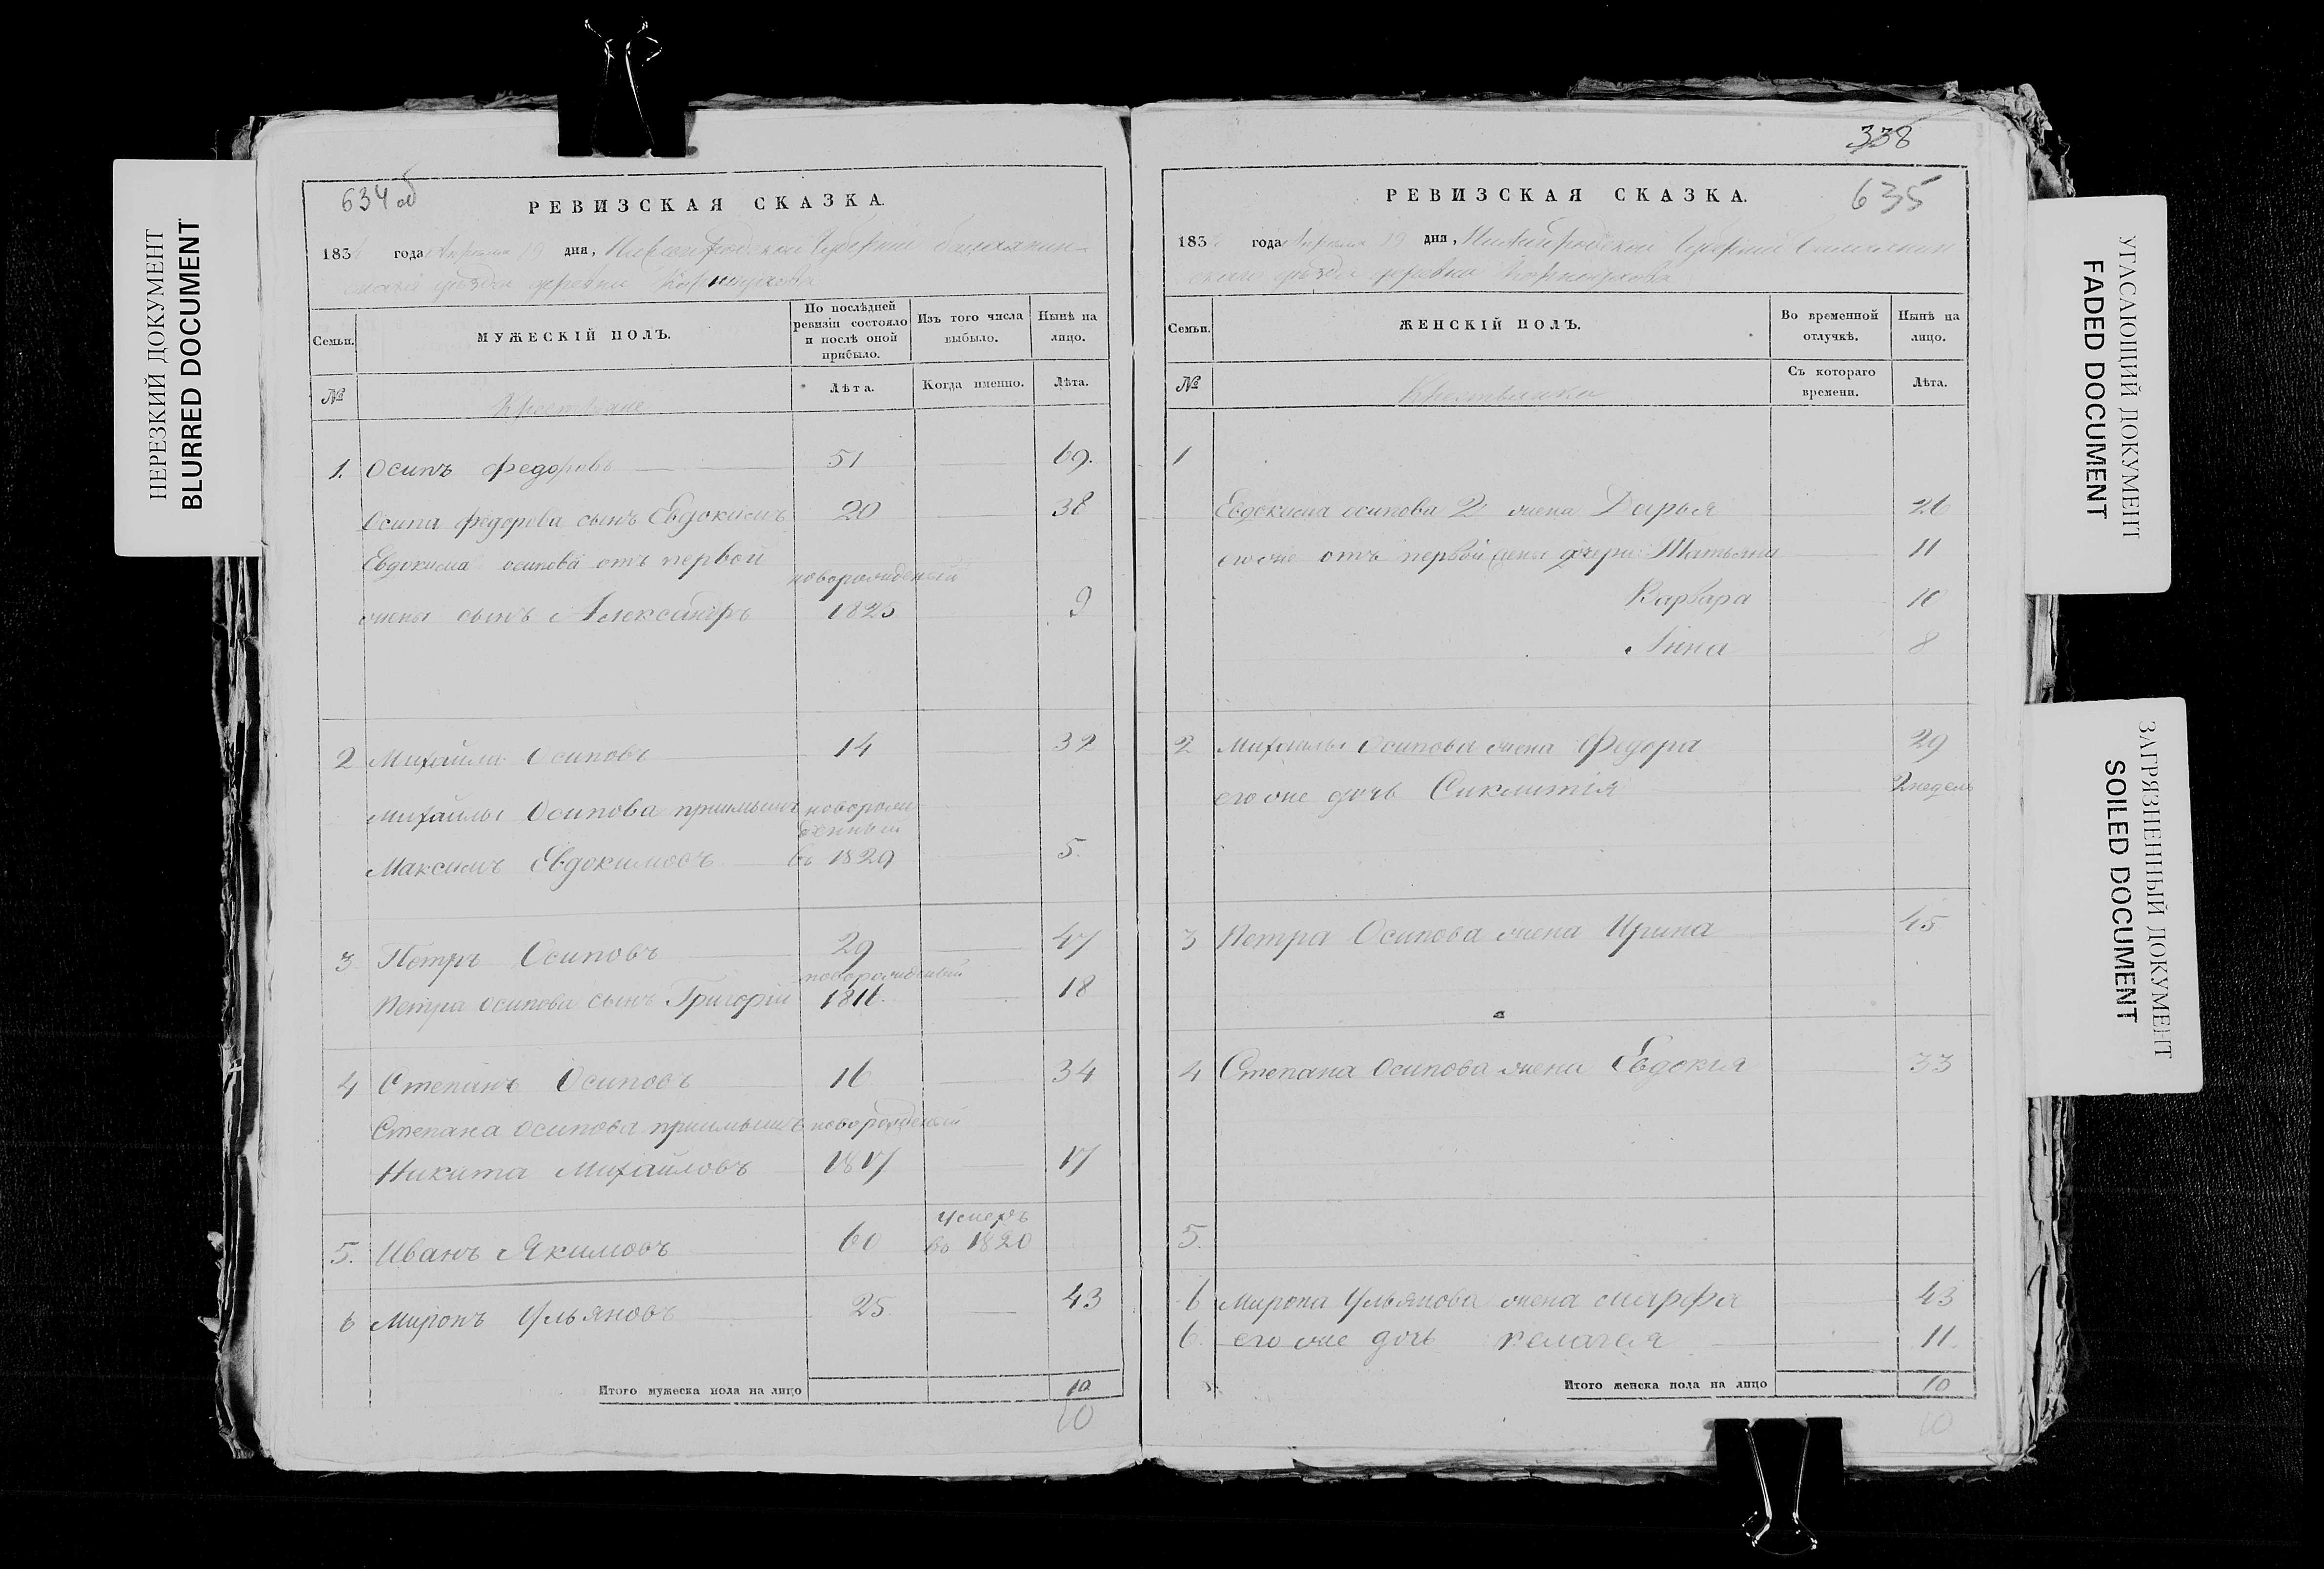 НЕРЕЗКИЙ ДОКУМЕНТ
BLURRED DOCUMENT
634 об
РЕВИЗСКАЯ СКАЗКА.
1834 года Апреля 19 дня, Нижегородской Губернии Балахнин-
скаго уѣзда деревни
Семьи.
МУЖЕСКІЙ ПОЛЪ.
По послѣдней ревизіи состояло и послѣ оной прибыло.
Изъ того числа выбыло.
Нынѣ на лицо.
№
Крестьяне
Лѣта.
Когда именно.
Лѣта.
1. Осипъ Федоровъ 51 69.
Осипа Федорова сынъ Евдокимъ 20 38
Евдокима осипова отъ первой
новорожденый
жены сынъ Александръ 1825 9
2 Михайла Осиповъ 14 32
Михайлы Осипова приимышъ новорож
денный
Максимъ Евдокимовъ въ 1829 5.
3 Петръ Осиповъ 29 47
новорожденный
Петра осипова сынъ Григорій 1816. 18
4 Степанъ Осиповъ 16 34
Степана осипова приимышъ новорожденый
Никита Михайловъ 1817 17
умеръ
5. Иванъ Якимовъ 60 въ 1820
6 Миронъ Ульяновъ 25 43
Итого мужеска пола на лицо 10
10
338
635
РЕВИЗСКАЯ СКАЗКА.
1834 года Апреля 19 дня, Нижегородской Губернии Балахнин
скаго уѣзда деревни
Семьи.
ЖЕНСКІЙ ПОЛЪ.
Во временной отлучкѣ.
Нынѣ на лицо.
№
Крестьянки
Съ котораго времени.
Лѣта.
1
Евдокима осипова 2 жена Дарья 26
его же отъ первой жены дочери Татьяна 11
Варвара 10
Анна 8
2 Михайлы Осипова жена Федора 29
его же дочь Сиклитія 2 недель
3 Петра Осипова жена Ирина 45
4 Степана Осипова жена Евдокія 33
5.
6 Мирона Ульянова жена марфа 43
6. его же дочь пелагея 11
Итого женска пола на лицо 10
10
УГАСАЮЩИЙ ДОКУМЕНТ
FADED DOCUMENT
ЗАГРЯЗНЕННЫЙ ДОКУМЕНТ
SOILED DOCUMENT